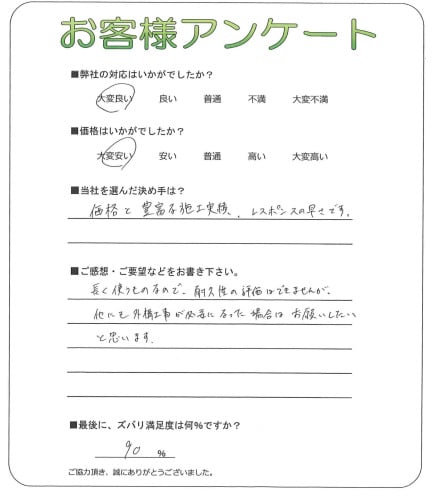 お客様アンケート
■弊社の対応はいかがでしたか？
大変良い 良い 普通 不満 大変不満
■価格はいかがでしたか？
大変安い 安い 普通 高い 大変高い
■当社を選んだ決め手は？
価格と豊富な施工実績、レスポンスの早さです。
■ご感想・ご要望などをお書き下さい。
長く使うものなので、耐久性の評価はできませんが、
他にも外構工事が必要になった場合はお願いしたい
と思います。
■最後に、ズバリ満足度は何％ですか？
90 ％
ご協力頂き、誠にありがとうございました。